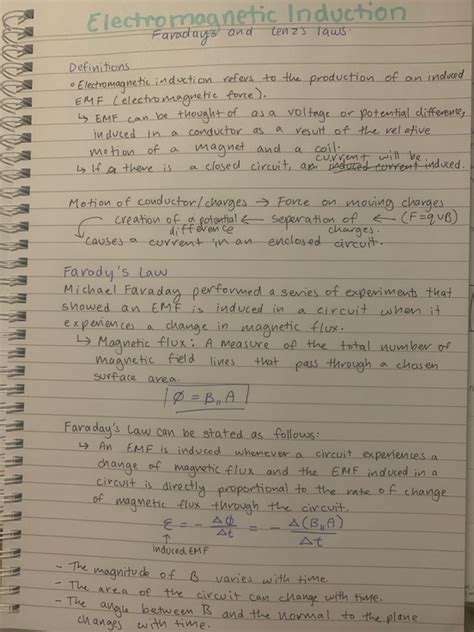 Electromagnetic Induction
Faraday's and Lenz's laws.
Definitions
• Electromagnetic induction refers to the production of an induced
EMF (electromagnetic force).
↳ EMF can be thought of as a voltage or potential difference,
induced in a conductor as a result of the relative
motion of a magnet and a coil.
current will be
↳ If a there is a closed circuit, an induced current induced.
Motion of conductor/charges → Force on moving charges
creation of a potential ← seperation of ← (F=qυB)
difference charges.
↳ causes a current in an enclosed circuit.
Farady's Law
Michael Faraday performed a series of experiments that
showed an EMF is induced in a circuit when it
experiences a change in magnetic flux.
↳ Magnetic flux: A measure of the total number of
magnetic field lines that pass through a chosen
surface area.
Ø = B₁₁ A
Faraday's Law can be stated as follows:
↳ An EMF is induced whenever a circuit experiences a
change of magnetic flux and the EMF induced in a
circuit is directly proportional to the rate of change
of magnetic flux through the circuit.
ε = - ΔØ/Δt = - Δ(B₁₁A)/Δt
↑
induced EMF
- The magnitude of B varies with time
- The area of the circuit can change with time.
- The angle between B and the normal to the plane
changes with time.